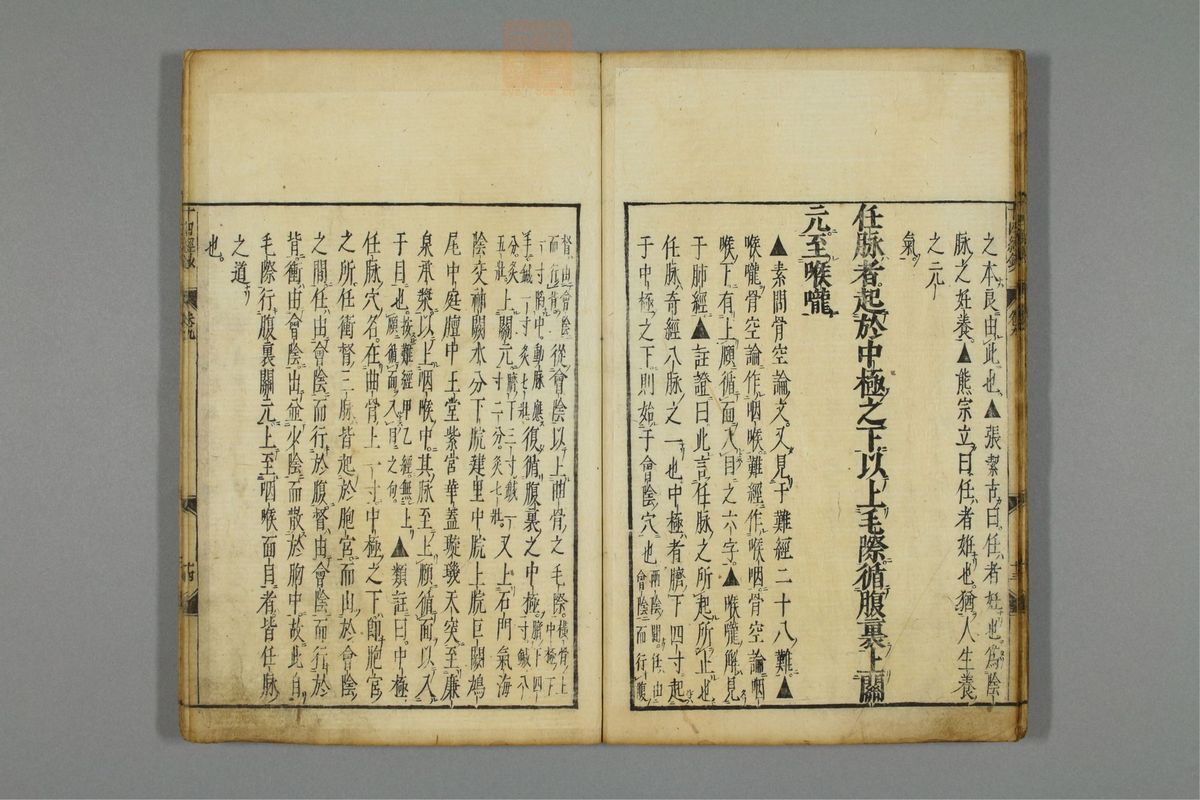 之本良由此也▲張潔古曰任者妊也為陰
脉之妊養▲熊宗立曰任者妊也猶人生養
之元
氣
任脉者起於中極之下以上毛際循腹裏上關
元至喉嚨
▲素問骨空論文又見于難經二十八難▲
喉嚨骨空論作咽喉難經作喉咽骨空論咽
喉下有上頤循面入目之六字▲喉嚨解見
于肺經▲註證曰此言任脉之所起所止也
任脉奇經八脉之一也中極者臍下四寸起
于中極之下則始于會陰穴也兩陰間任由
會陰而行腹
督由會陰
而行背從會陰以上曲骨之毛際橫骨上中極下
一寸陷中動脉應
手鍼二寸灸七壯復循腹裏之中極臍下四寸鍼八
分灸
五壯上關元臍下三寸鍼一
寸二分灸七壯又上石門氣海
陰交神闕水分下脘建里中脘上脘巨闕鳩
尾中庭膻中玉堂紫宮華蓋璇璣天突至廉
泉承漿以上咽喉中其脉至上頤循面以入
于目也按難經甲乙經無上
頤循面入目之句▲類註曰中極
任脉穴名在曲骨上一寸中極之下即胞宮
之所任衝督三脉皆起於胞宮而出於會陰
之間任由會陰而行於腹督由會陰而行於
背衝由會陰出並少陰而散於胸中故此自
毛際行腹裏關元上至咽喉面目者皆任脉
之道
也
十四經
卷九
十四